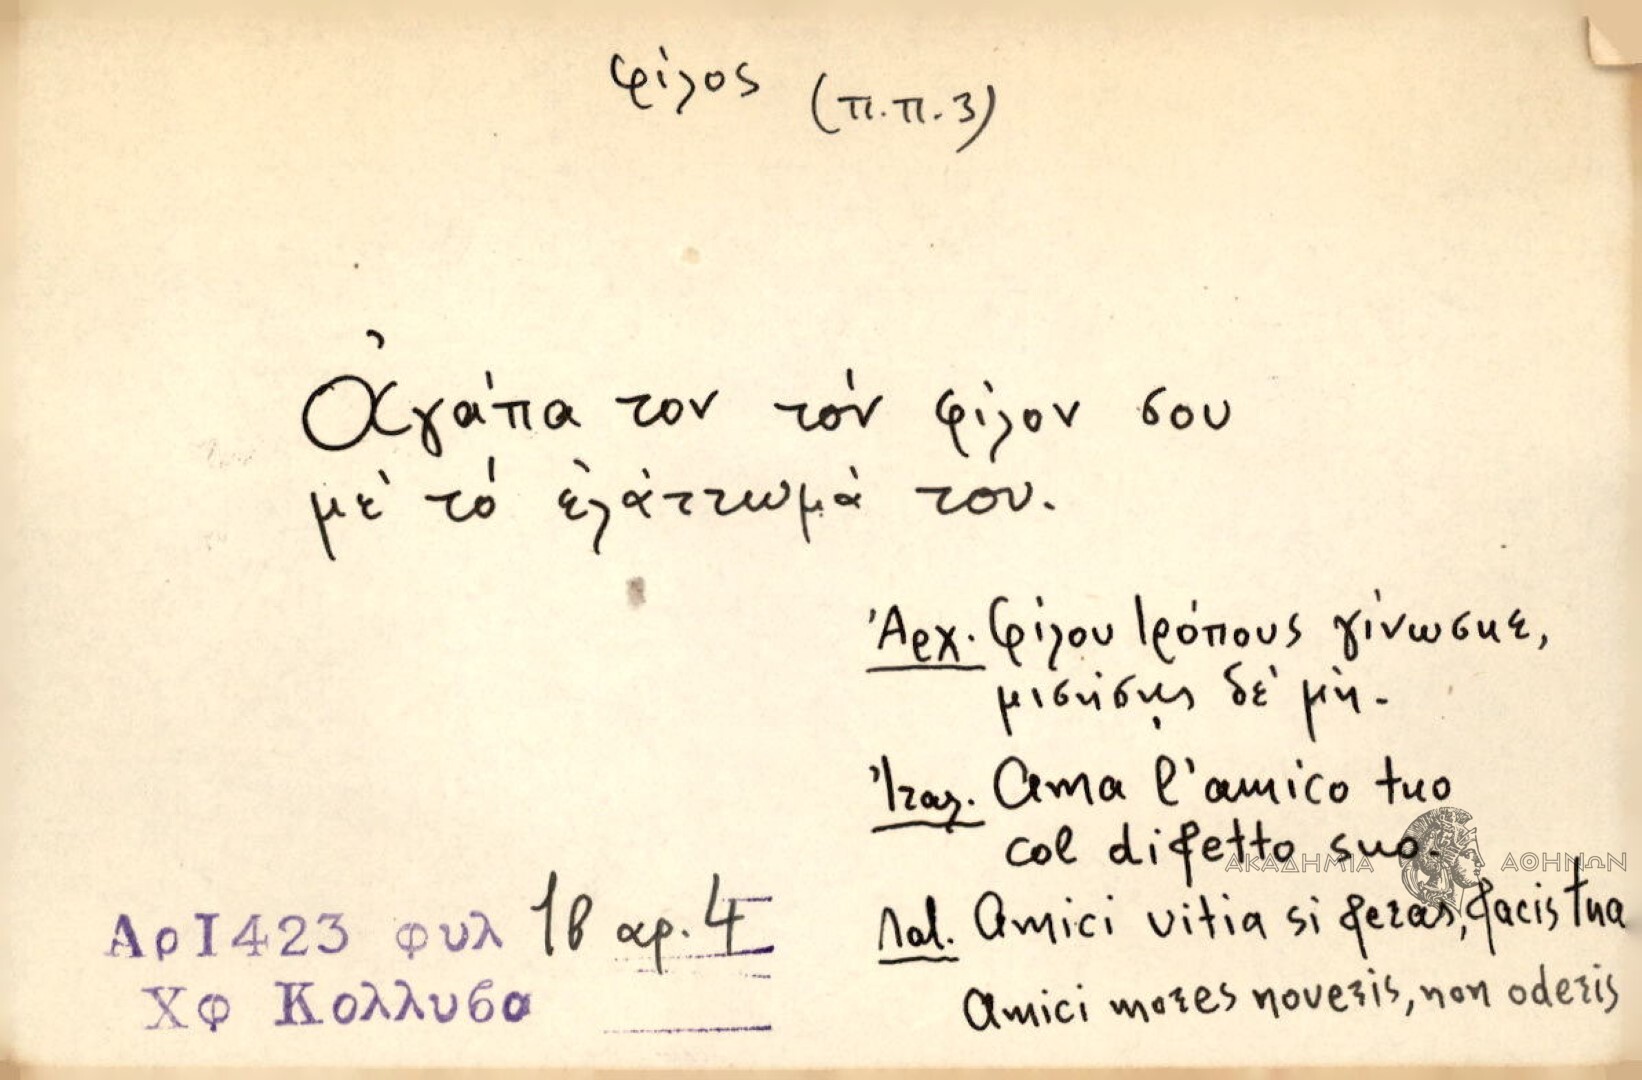 φίλος (π.π.3)
Ἀγάπα τον τόν φίλον σου
μέ τό ἐλάττωμά του.
Ἀρχ. Φίλου τρόπους γίνωσκε,
μισήσῃς δέ μή.
Ἰταλ. Ama l'amico tuo
col difetto suo.
ΑΚΑΔΗΜΙΑ ΑΘΗΝΩΝ
Λατ. Amici vitia si feras, facis tua
Amici mores noveris, non oderis
Αρ1423 φυλ 1β αρ. 4
Χφ Κολλυβα